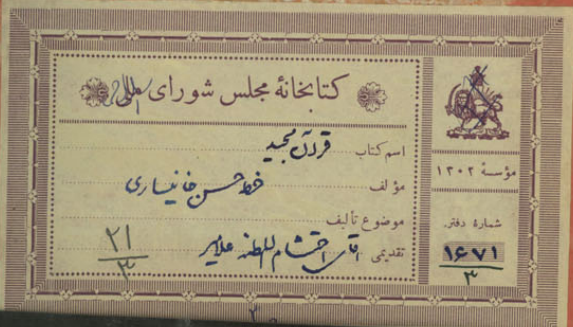 کتابخانهٔ مجلس شورای ملی
اسم کتاب قرآن مجید
مؤلف خط حسن خانیساری
موضوع تألیف
تقدیمی آقای احتشام السلطنه علامیر
۲۱
۳
مؤسسهٔ ۱۳۰۲
شمارهٔ دفتر
۱۶۷۱
۳